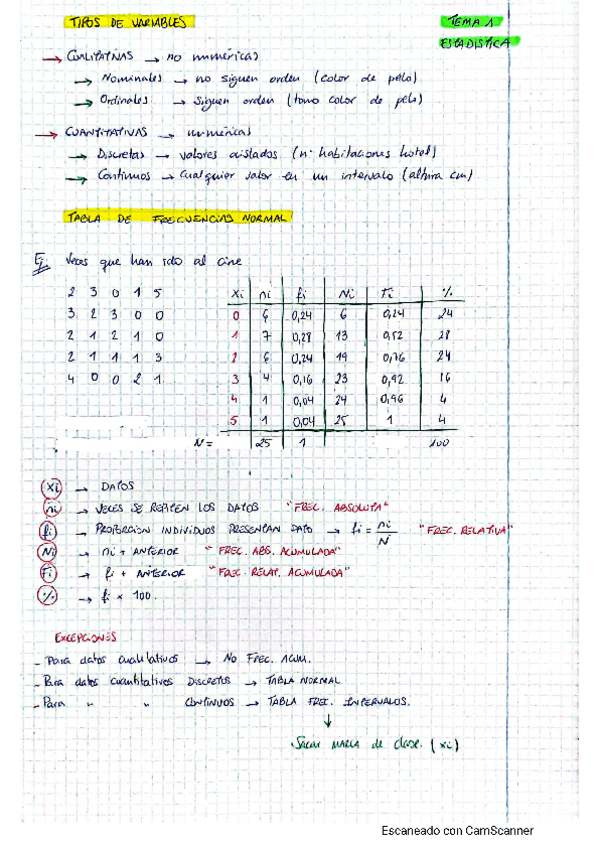 TIPOS DE VARIABLES
TEMA 1
ESTADISTICA
→ CUALITATIVAS → no numéricas
→ Nominales → no siguen orden (color de pelo)
→ Ordinales → siguen orden (tono color de pelo)
→ CUANTITATIVAS → numéricas
→ Discretas → valores aislados (nº habitaciones hotel)
→ Continuos → cualquier valor en un intervalo (altura cm)
TABLA DE FRECUENCIAS NORMAL
Ej. Veces que han ido al cine
2 3 0 1 5
3 2 3 0 0
2 1 2 1 0
2 1 1 1 3
4 0 0 2 1
xi ni fi Ni Fi %
0 6 0,24 6 0,24 24
1 7 0,28 13 0,52 28
2 6 0,24 19 0,76 24
3 4 0,16 23 0,92 16
4 1 0,04 24 0,96 4
5 1 0,04 25 1 4
N = 25 1 100
xi → DATOS
ni → VECES SE REPITEN LOS DATOS "FREC. ABSOLUTA"
fi → PROPORCION INDIVIDUOS PRESENTAN DATO → fi = ni/N "FREC. RELATIVA"
Ni → ni + ANTERIOR "FREC. ABS. ACUMULADA"
Fi → fi + ANTERIOR "FREC. RELAT. ACUMULADA"
% → fi x 100.
EXCEPCIONES
- Para datos cualitativos → NO FREC. ACUM.
- Para datos cuantitativos DISCRETOS → TABLA NORMAL
- Para " " CONTINUOS → TABLA FREC. INTERVALOS.
↓
Sacar MARCA de clase. (xi)
Escaneado con CamScanner